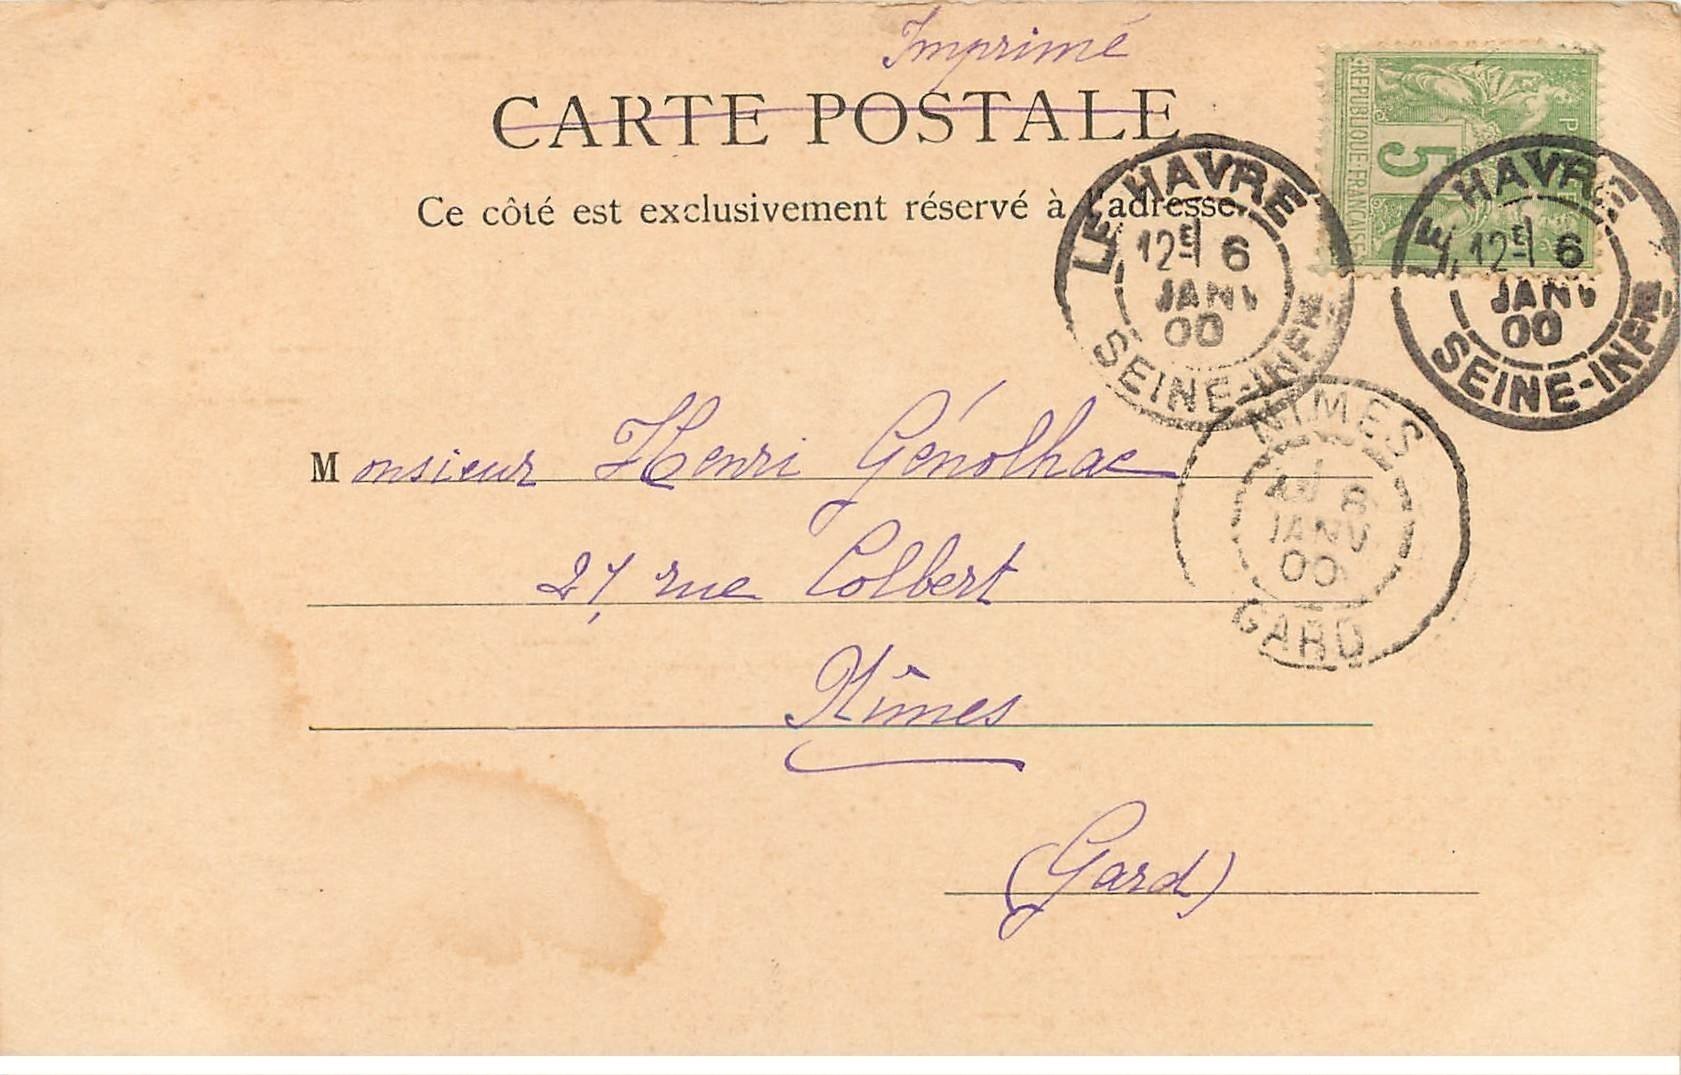 Imprimé
CARTE POSTALE
Ce côté est exclusivement réservé à l'adresse.
REPUBLIQUE FRANÇAISE
5
LE HAVRE
12E 6
JANV
00
SEINE-INFRE
LE HAVRE
12E 6
JANV
00
SEINE-INFRE
NIMES
8
JANV
00
GARD
Monsieur Henri Génolhac
27, rue Colbert
Nîmes
(Gard)